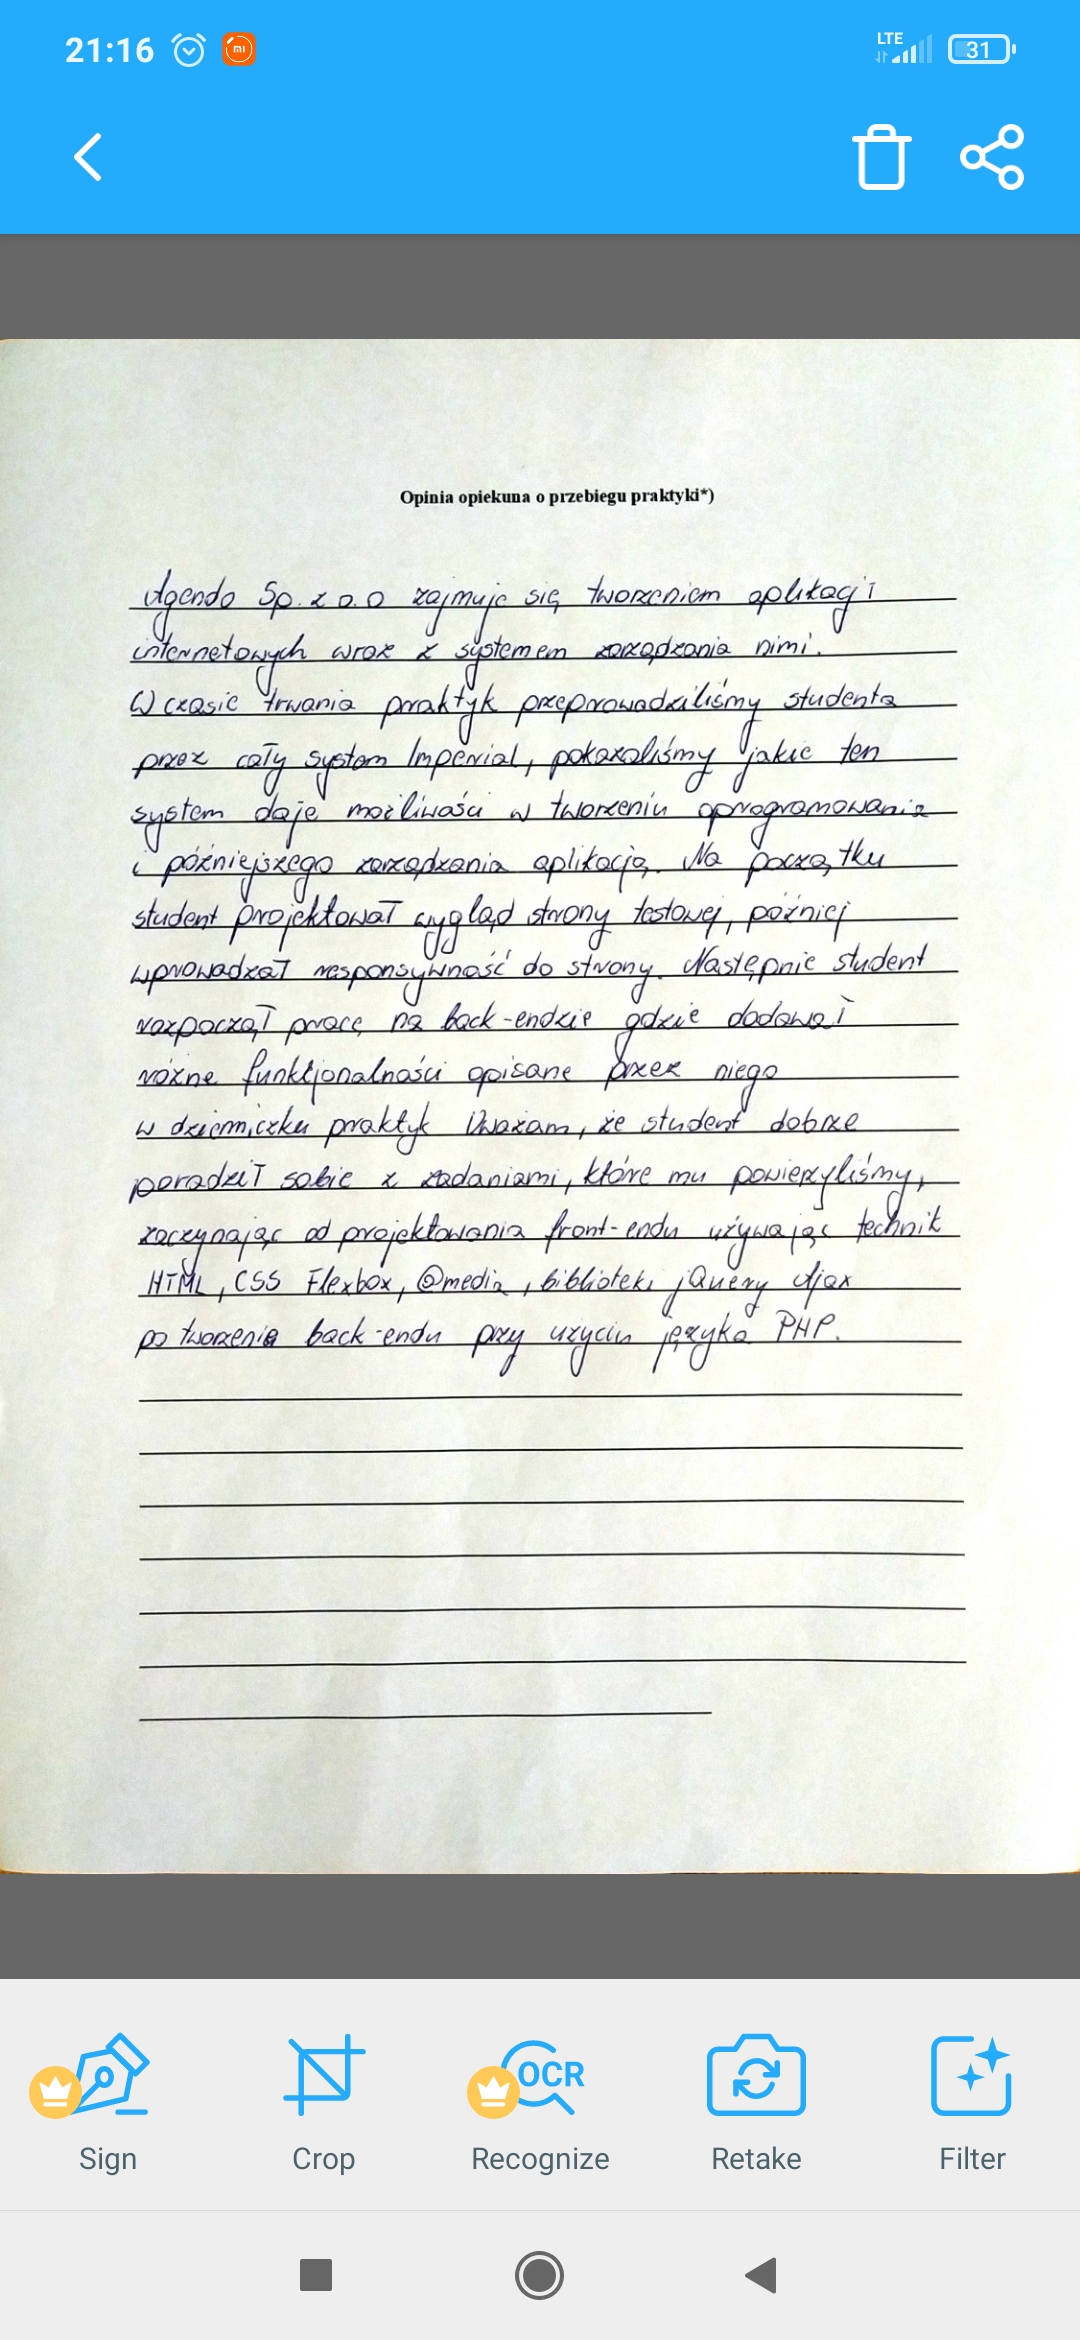 21:16
LTE
31
Opinia opiekuna o przebiegu praktyki*)
Agendo Sp. z o.o zajmuje się tworzeniem aplikacji
internetowych wraz z systemem zarządzania nimi.
W czasie trwania praktyk przeprowadziliśmy studenta
przez cały system Imperial, pokazaliśmy jakie ten
system daje możliwości w tworzeniu oprogramowania
i późniejszego zarządzania aplikacją. Na początku
student projektował wygląd strony testowej, później
wprowadzał responsywność do strony. Następnie student
rozpoczął pracę na back-endzie gdzie dodawał
różne funkcjonalności opisane przez niego
w dzienniczku praktyk Uważam, że student dobrze
poradził sobie z zadaniami, które mu powierzyliśmy,
zaczynając od projektowania front-endu używając technik
HTML, CSS Flexbox, @media, biblioteki jQuery Ajax
po tworzenia back-endu przy użyciu języka PHP.
OCR
Sign
Crop
Recognize
Retake
Filter